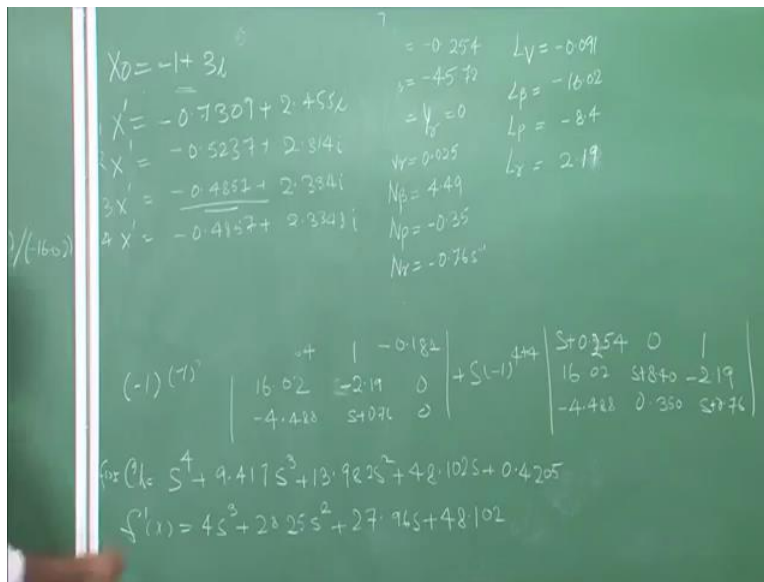 X0 = -1 + 3i
X' = -0.7309 + 2.455i
2X' = -0.5237 + 2.314i
3X' = -0.4857 + 2.334i
4X' = -0.4857 + 2.3343i
/(-16.02)
= -0.254
= -45.72
= Yr = 0
Nv = 0.025
Nβ = 4.49
Np = -0.35
Nr = -0.76s⁻¹
Lv = -0.091
Lβ = -16.02
Lp = -8.4
Lr = 2.19
(-1)
1 -0.182
16.02 -2.19 0
-4.488 S+0.76 0
+S(-1)⁴⁺⁴
S+0.254 0 1
16.02 S+8.40 -2.19
-4.488 0.350 S+0.76
= S⁴ + 9.417S³ + 13.982S² + 48.102S + 0.4205
f'(x) = 4S³ + 28.25S² + 27.96S + 48.102